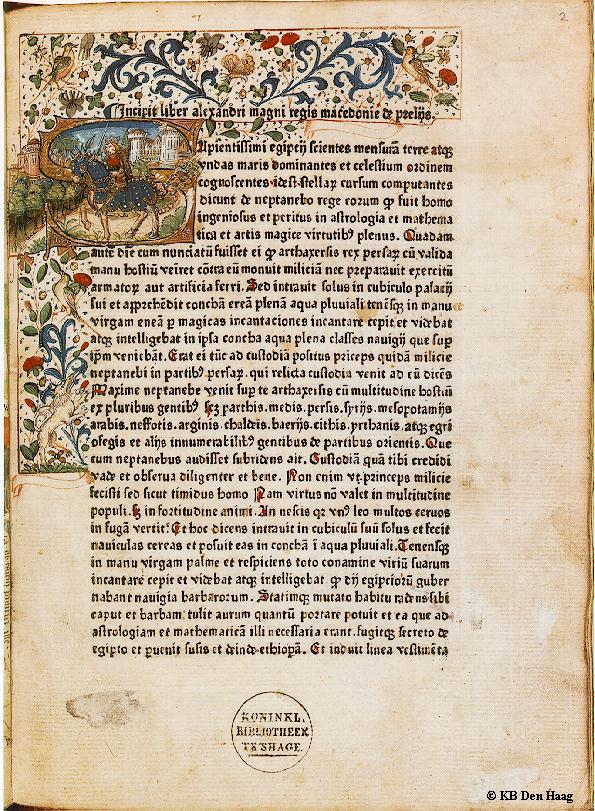 2
Incipit liber alexandri magni regis macedonie de prelijs.
Apientissimi egipcij scientes mensurã terre atqȝ
vndas maris dominantes et celestium ordinem
cognoscentes idest stellaꝝ cursum computantes
dicunt de neptanebo rege eorum ꝙ fuit homo
ingeniosus et peritus in astrologia et mathema
tica et artis magice virtutibꝰ plenus. Quadam
aute die cum nunciatũ fuisset ei ꝙ arthaxersis rex persaꝝ cũ valida
manu hostiũ veiret cõtra eũ monuit miliciã nec preparauit exercitũ
armatoꝝ aut artificia ferri. Sed intrauit solus in cubiculo palacij
sui et apprehẽdit conchã ereã plenã aqua pluuiali tenẽsqȝ in manu
virgam eneã ꝑ magicas incantaciones incantare cepit et videbat
atqȝ intelligebat in ipsa concha aqua plena classes nauigij que sup
ipm venichãt. Erat ei tũc ad custodiã positus priceps quidã milicie
neptanebi in partibꝰ persaꝝ. qui relicta custodia venit ad eũ dicẽs
Maxime neptanebe venit sup te arthaxersis cũ multitudine hostiũ
ex pluribus gentibꝰ sꝫ parthis. medis. persis. syrijs. mesopotamijs
arabis. neffotis. arginis. chaldeis. baerijs. cithis. prhanis. atqȝ egri
ofegis et alijs innumerabilibꝰ gentibus de partibus orientis. Que
cum neptanebus audisset subridens ait. Custodiã quã tibi credidi
vade et obserua diligenter et bene. Non enim vt princeps milicie
fecisti sed sicut timidus homo Nam virtus nõ valet in multitudine
populi. sꝫ in fortitudine animi. An nescis qꝫ vnꝰ leo multos ceruos
in fugã vertit: Et hoc dicens intrauit in cubiculũ suũ solus et fecit
nauiculas cereas et posuit eas in conchã ĩ aqua pluuiali. Tenensqȝ
in manu virgam palme et respiciens toto conamine viriũ suarum
incantare cepit et videbat atqȝ intelligebat ꝙ dij egipciorũ guber
nabant nauigia barbarorum. Statimqȝ mutato habitu radens sibi
caput et barbam: tulit aurum quantũ portare potuit et ea que ad
astrologiam et mathematicã illi necessaria erant. fugitqȝ secreto de
egipto et ꝑuenit susis et deinde ethiopiã. Et induit linea vestimẽta
KONINKL.
BIBLIOTHEEK
TE'SHAGE.
© KB Den Haag